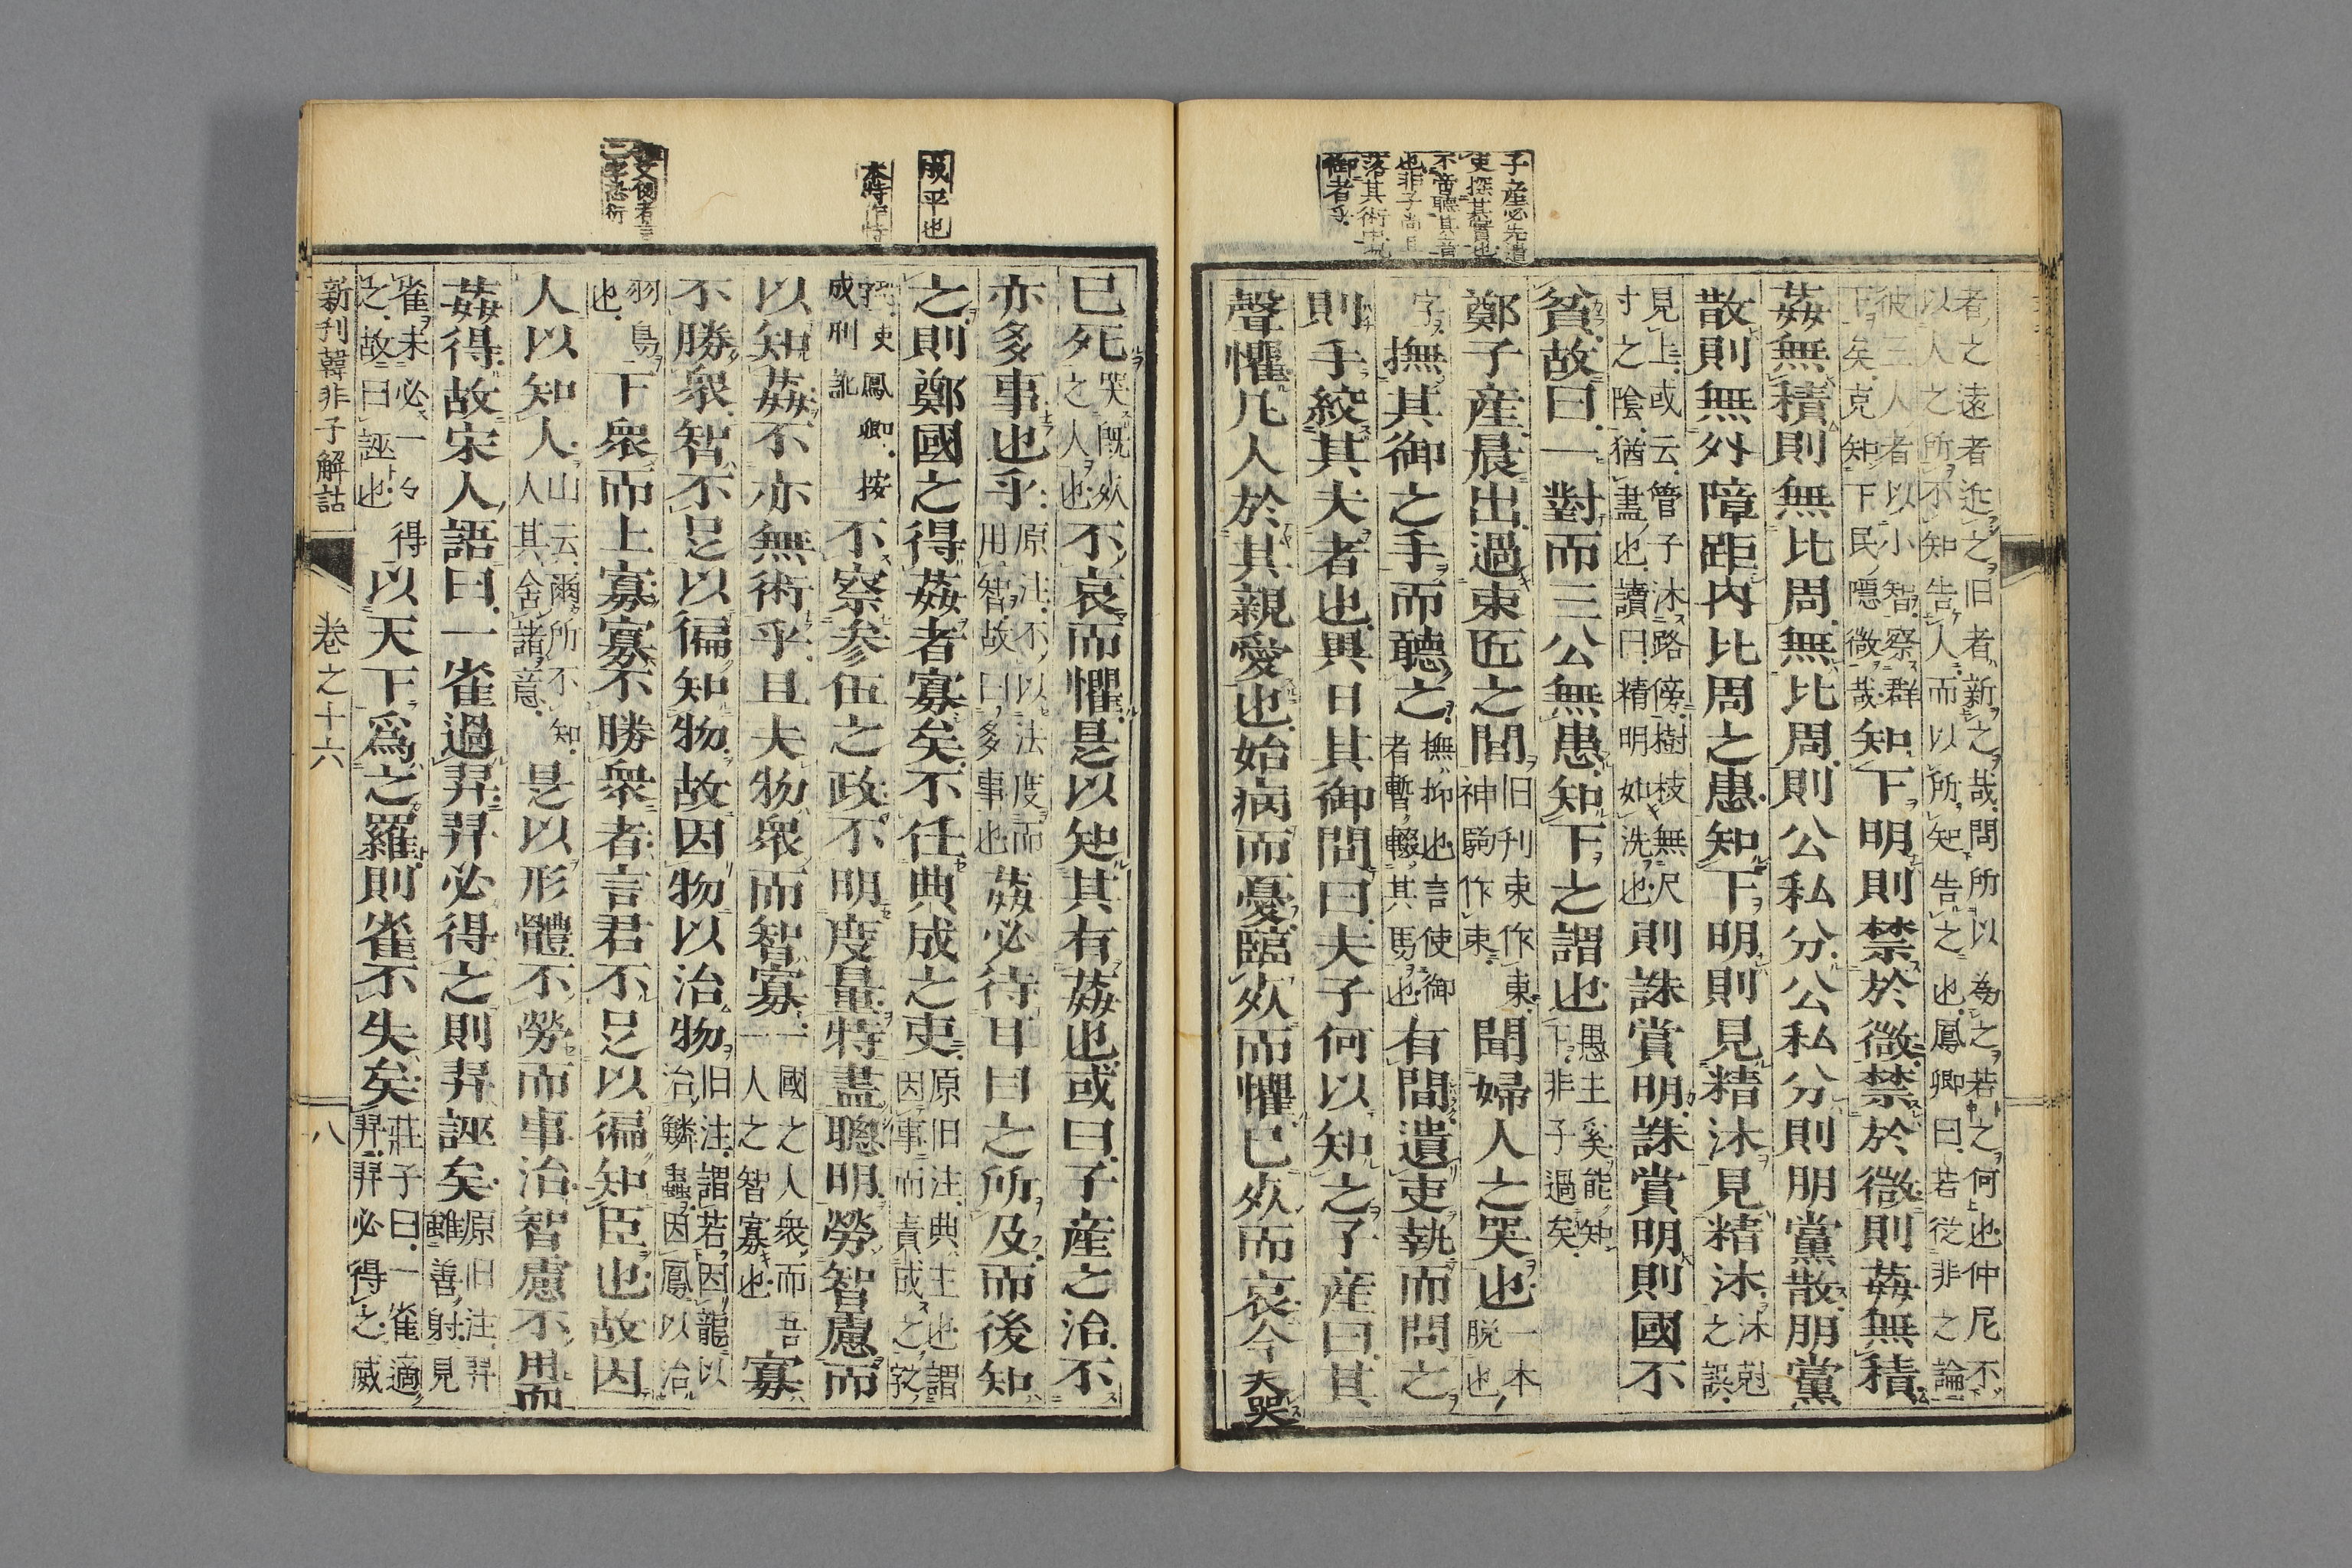 子產必先遣
吏探其實也
不啻聽其音
也非子尚且
落其術中況
御者乎
者之遠者近之旧者新之哉問所以為之若之何也仲尼不
以人之所不知告人而以所知告之也鳳卿曰若從非之論
彼三人者以小智察群
下矣克知下民隱微哉
知下明則禁於微禁於微則姦無積
姦無積則無比周無比周則公私分公私分則朋黨散朋黨
散則無外障距內比周之患知下明則見精沐見精沐
沐尅
之誤
見上或云管子沐路傍樹枝無尺
寸之陰猶盡也讀曰精明如洗也
則誅賞明誅賞明則國不
貧故曰一對而三公無患知下之謂也
愚主奚能知
下非子過矣
鄭子產晨出過東匠之閭
旧刊束作東
神駒作束
聞婦人之哭也
一本
脫也
字
撫其御之手而聽之
撫抑也言使御
者暫輟其馬也
有間遣吏執而問之
則手絞其夫者也異日其御問曰夫子何以知之子產曰其
聲懼凡人於其親愛也始病而憂臨死而懼已死而哀今夫哭
成平也
本特作恃
已死
哭既死
之人也
不哀而懼是以知其有姦也或曰子產之治不
亦多事也乎
原注不以法度而
用智故曰多事也
姦必待耳目之所及而後知
之則鄭國之得姦者寡矣不任典成之吏
原旧注典主也謂
因事而責成之
吏鳳卿按
成刑訛
不察參伍之政不明度量特盡聰明勞智慮而
以知姦不亦無術乎且夫物眾而智寡
一國之人衆而吾
一人之智寡也
寡
不勝眾智不足以徧知物故因物以治物
旧注謂若因龍以
治鱗蟲因鳳以治
羽鳥
也
下眾而上寡寡不勝眾者言君不足以徧知臣也故因
人以知人
山云爾所不知
人其舍諸意
是以形體不勞而事治智慮不用而
姦得故宋人語曰一雀過羿羿必得之則羿誣矣
原旧注羿
雖善射見
雀未必一々得
之故曰誣也
以天下爲之羅則雀不失矣
莊子曰一雀適
羿羿必得之威
新刊韓非子解詁
卷之十六
八